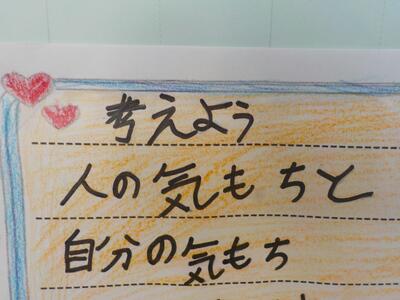 考えよう
人の気もちと
自分の気もち